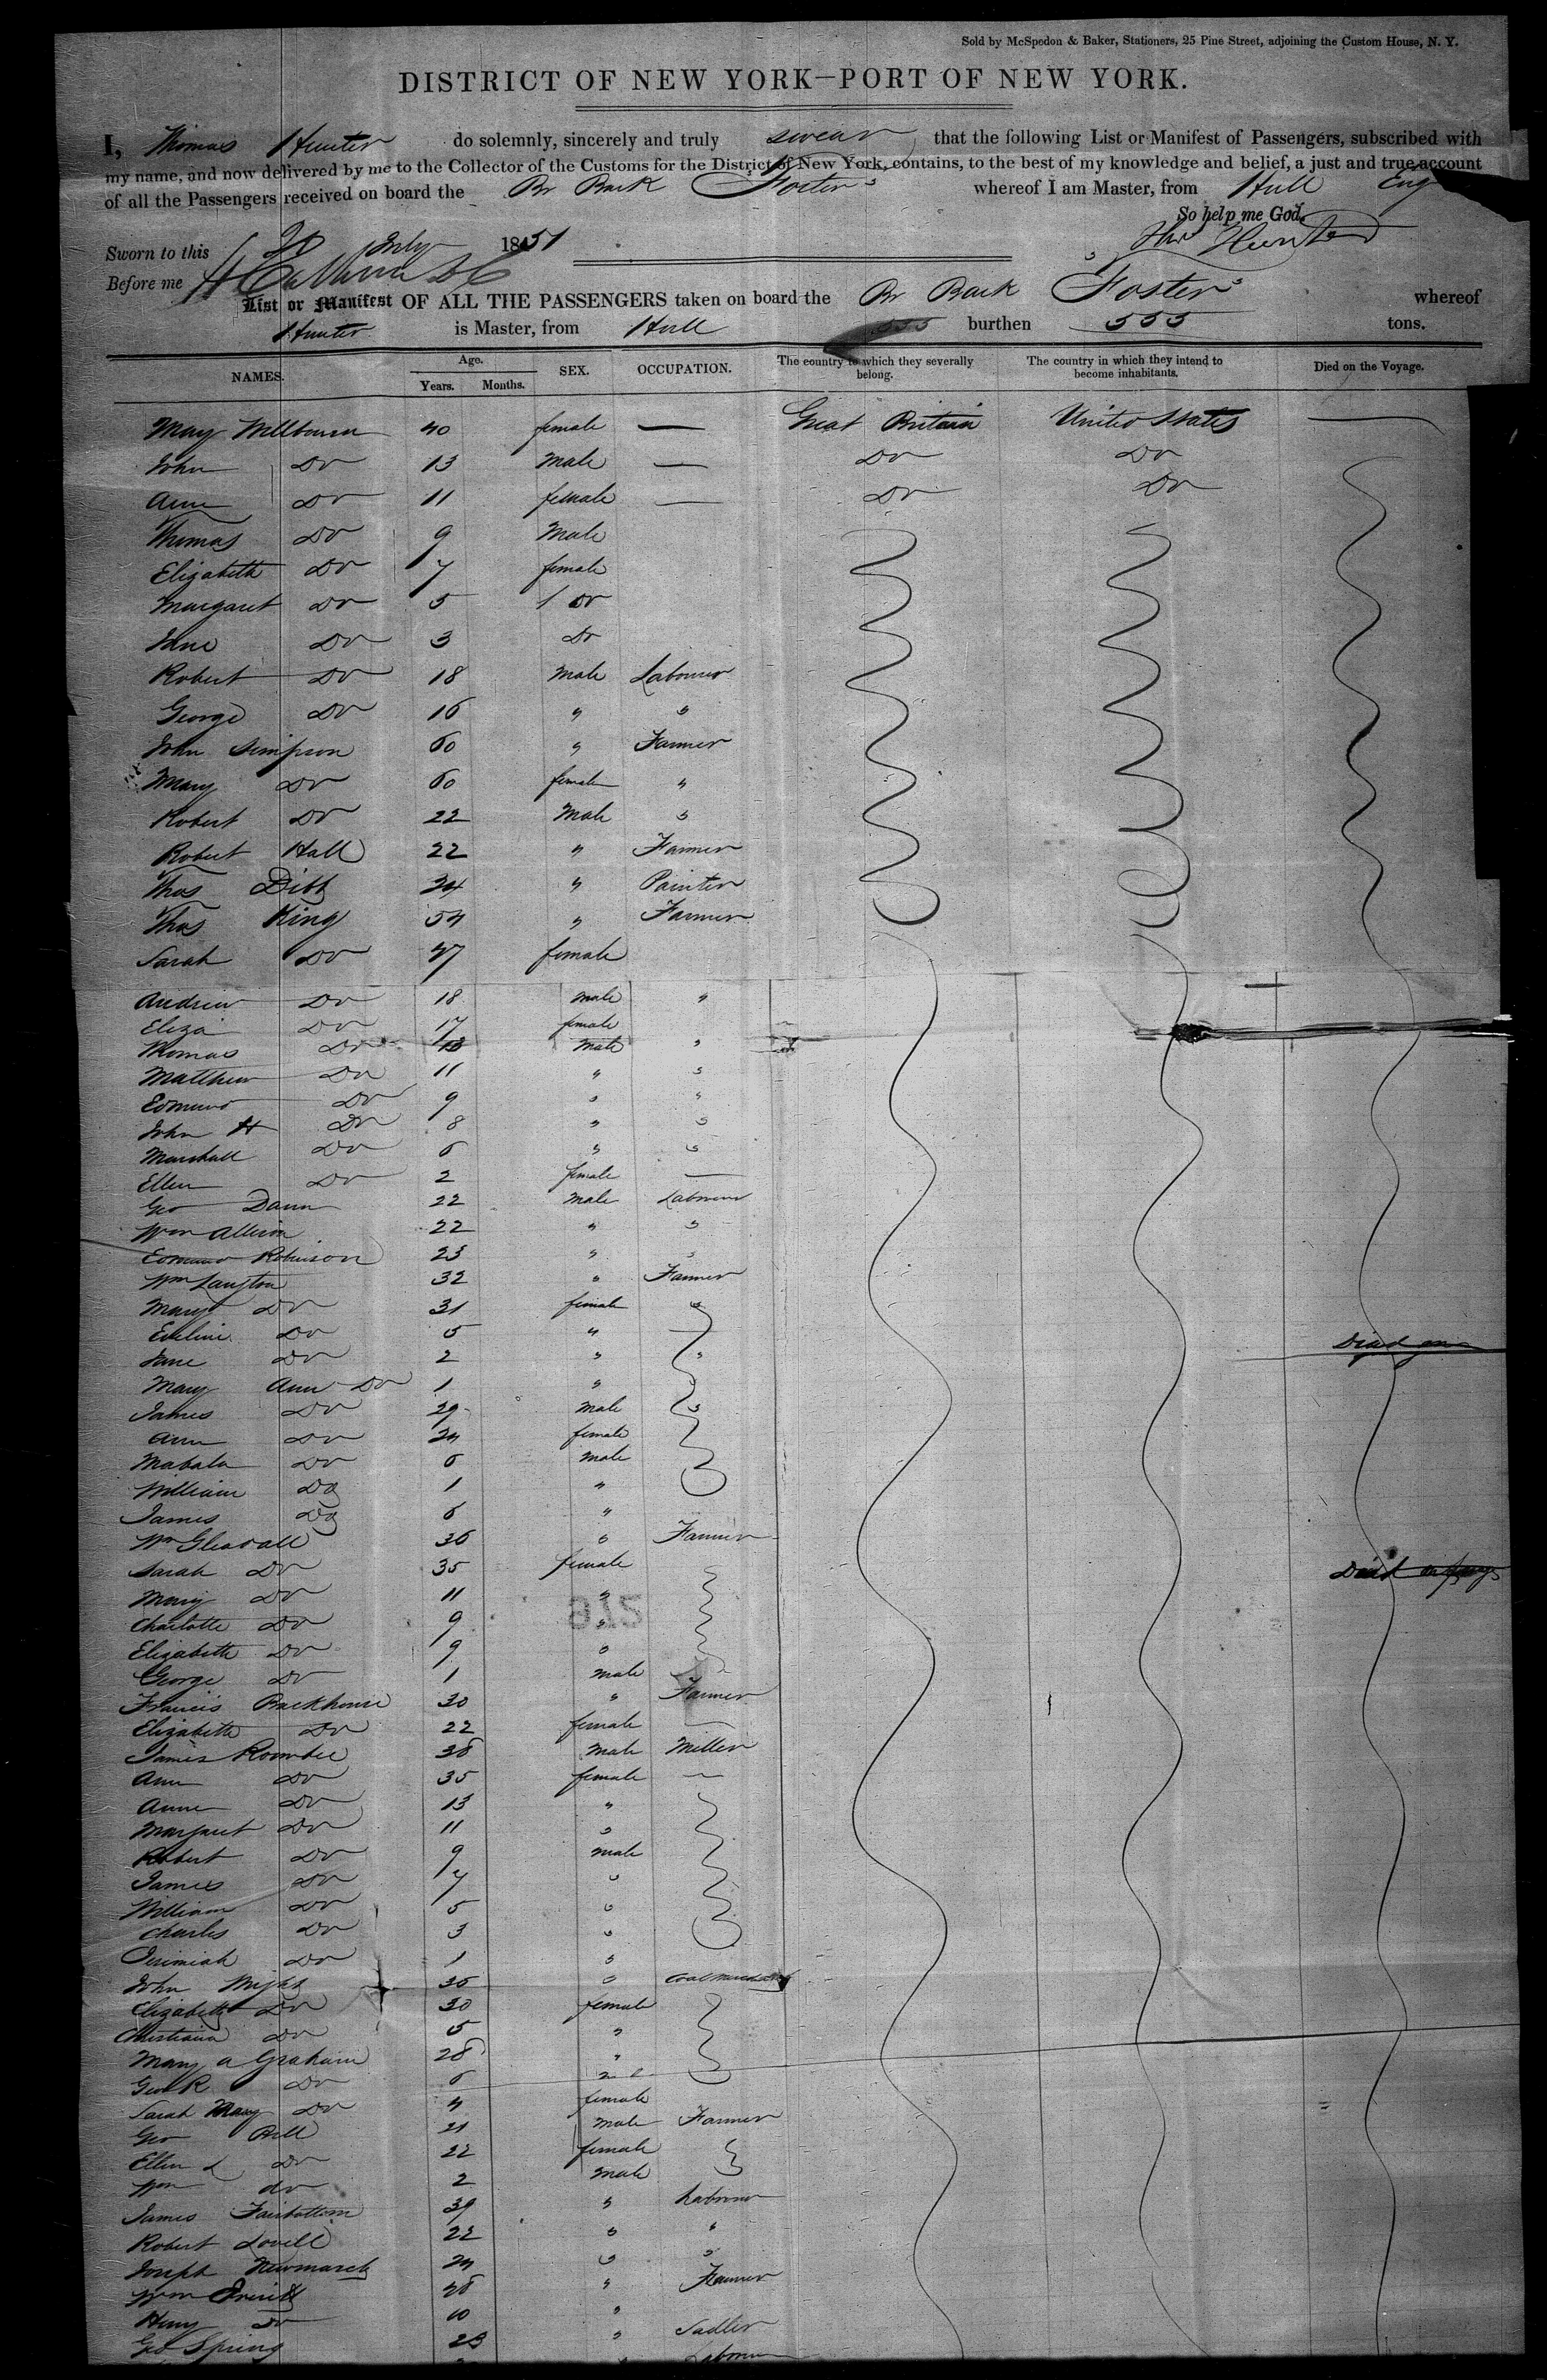 Sold by McSpedon & Baker, Stationers, 25 Pine Street, adjoining the Custom House, N. Y.
DISTRICT OF NEW YORK—PORT OF NEW YORK.
I, Thomas Hunter do solemnly, sincerely and truly swear that the following List or Manifest of Passengers, subscribed with
my name, and now delivered by me to the Collector of the Customs for the District of New York, contains, to the best of my knowledge and belief, a just and true account
of all the Passengers received on board the Br Bark Foster whereof I am Master, from Hull Eng
So help me God.
Sworn to this 20 July 1851 Thos Hunter
Before me
List or Manifest OF ALL THE PASSENGERS taken on board the Br Bark Foster whereof
Hunter is Master, from Hull burthen 555 tons.
NAMES. Age. Years. Months. SEX. OCCUPATION. The country to which they severally belong. The country in which they intend to become inhabitants. Died on the Voyage.
Mary Wellbourn 40 female — Great Britain United States —
John Do 13 Male — Do Do
Ann Do 11 female — Do Do
Thomas Do 9 Male
Elizabeth Do 7 female
Margaret Do 5 Do
Jane Do 3 Do
Robert Do 18 Male Labourer
George Do 16 " "
John Simpson 60 " Farmer
Mary Do 60 female "
Robert Do 22 Male "
Robert Hall 22 " Farmer
Thos Dibb 34 " Painter
Thos King 54 " Farmer
Sarah Do 47 female
Andrew Do 18 male "
Eliza Do 17 female
Thomas Do 13 Male "
Matthew Do 11 " "
Edmund Do 9 " "
John H Do 8 " "
Marshall Do 6 " "
Ellen Do 2 female —
Geo Dann 22 Male Labourer
Wm Allison 22 " "
Edmund Robinson 23 " "
Wm Langton 32 " Farmer
Mary Do 31 female "
Eveline Do 5 "
Jane Do 2 " " Died
Mary Ann Do 1 "
James Do 29 Male "
Ann Do 24 female
Mabala Do 6 male
William Do 1 "
James Do 6 "
Wm Gleadall 36 " Farmer
Sarah Do 35 female Died
Mary Do 11 "
Charlotte Do 9 "
Elizabeth Do 9 "
George Do 1 male
Francis Backhouse 30 " Farmer
Elizabeth Do 22 female —
James Roombee 38 Male Miller
Ann Do 35 female —
Anne Do 13 "
Margaret Do 11 "
Robert Do 9 male
James Do 7 "
William Do 5 "
Charles Do 3 "
Jerimiah Do 1 "
John 35 "
Elizabeth Do 30 female
Christiana Do 5 "
Mary A Graham 28 "
Geo R Do 6
Sarah Mary Do 4 female
Geo Hill 21 Male Farmer
Ellen Do 22 female
Wm do 2 Male
James Fairbottom 39 " Labourer
Robert Lovell 22 " "
Joseph Newmarch 24 " "
Wm Everitt 48 " Farmer
Henry Do 10 "
Geo Spring 23 " Sadler
Labourer